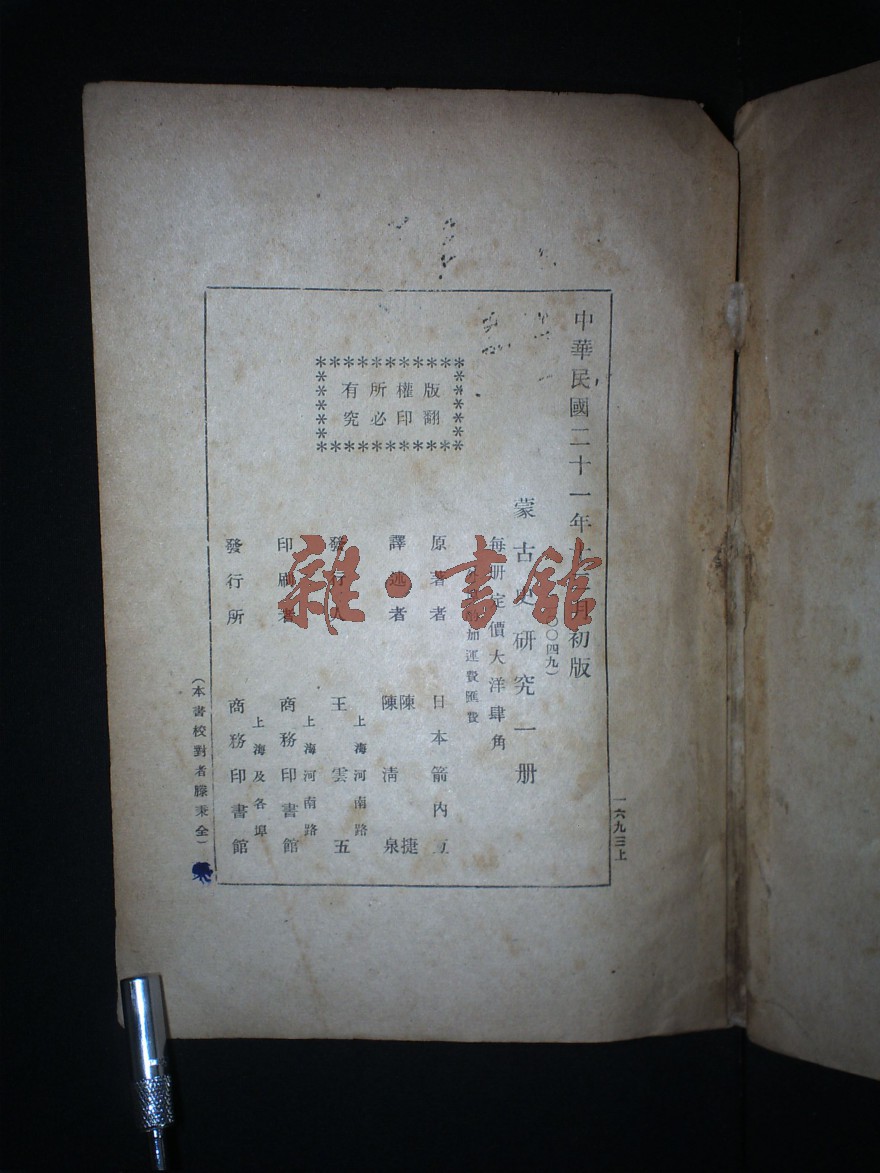 中華民國二十一年
月初版
〇〇四九)
蒙古史研究一册
每册定價大洋肆角
加運費匯費
版權所有
翻印必究
原著者 日本箭内亙
譯述者 陳捷 陳清泉
發行人 王雲五
上海河南路
印刷者 商務印書館
上海河南路
發行所 商務印書館
上海及各埠
(本書校對者滕秉全)
一六九三上
雜·書館